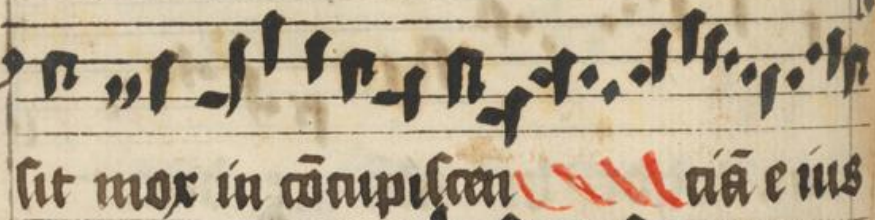 sit mox in cōcupiscen ciā e ius